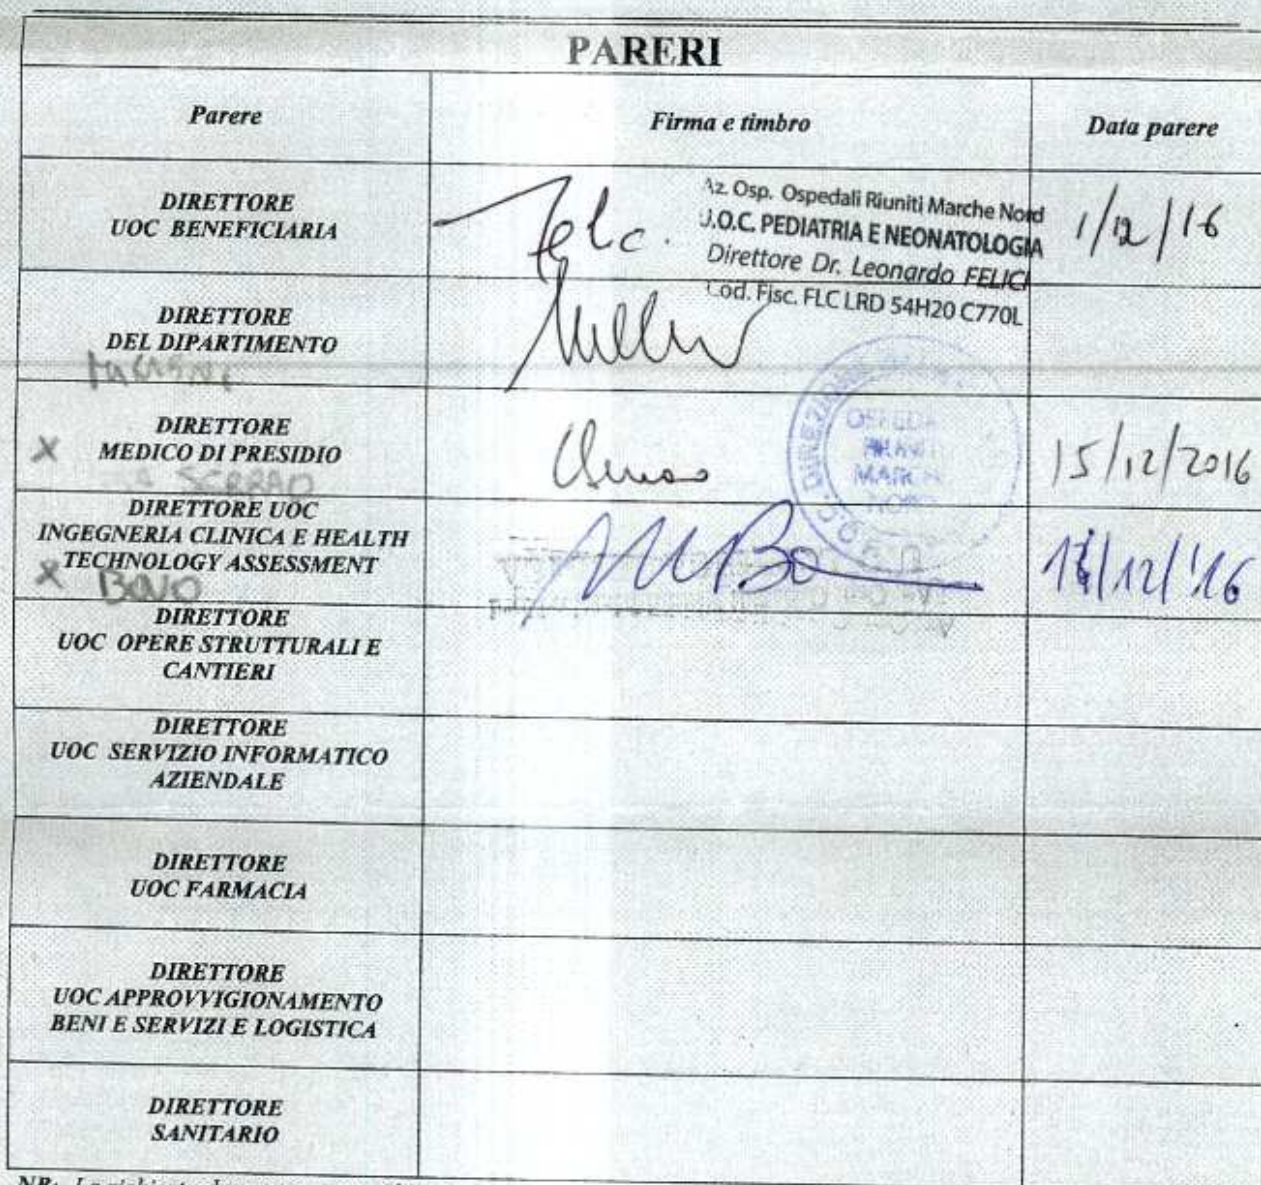 PARERI
Parere
Firma e timbro
Data parere
DIRETTORE
UOC BENEFICIARIA
Az. Osp. Ospedali Riuniti Marche Nord
U.O.C. PEDIATRIA E NEONATOLOGIA
Direttore Dr. Leonardo FELICI
Cod. Fisc. FLC LRD 54H20 C770L
1/12/16
DIRETTORE
DEL DIPARTIMENTO
DIRETTORE
X MEDICO DI PRESIDIO
SERRAO
15/12/2016
DIRETTORE UOC
INGEGNERIA CLINICA E HEALTH
TECHNOLOGY ASSESSMENT
X BONO
/12/'16
DIRETTORE
UOC OPERE STRUTTURALI E
CANTIERI
DIRETTORE
UOC SERVIZIO INFORMATICO
AZIENDALE
DIRETTORE
UOC FARMACIA
DIRETTORE
UOC APPROVVIGIONAMENTO
BENI E SERVIZI E LOGISTICA
DIRETTORE
SANITARIO